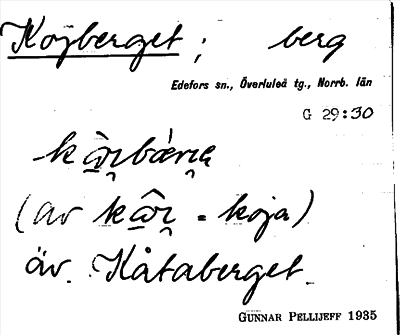 Kojberget; berg
Edefors sn., Överluleå tg., Norrb. län
G 29:30
(av = koja)
äv. Kåtaberget.
GUNNAR PELLIJEFF 1935